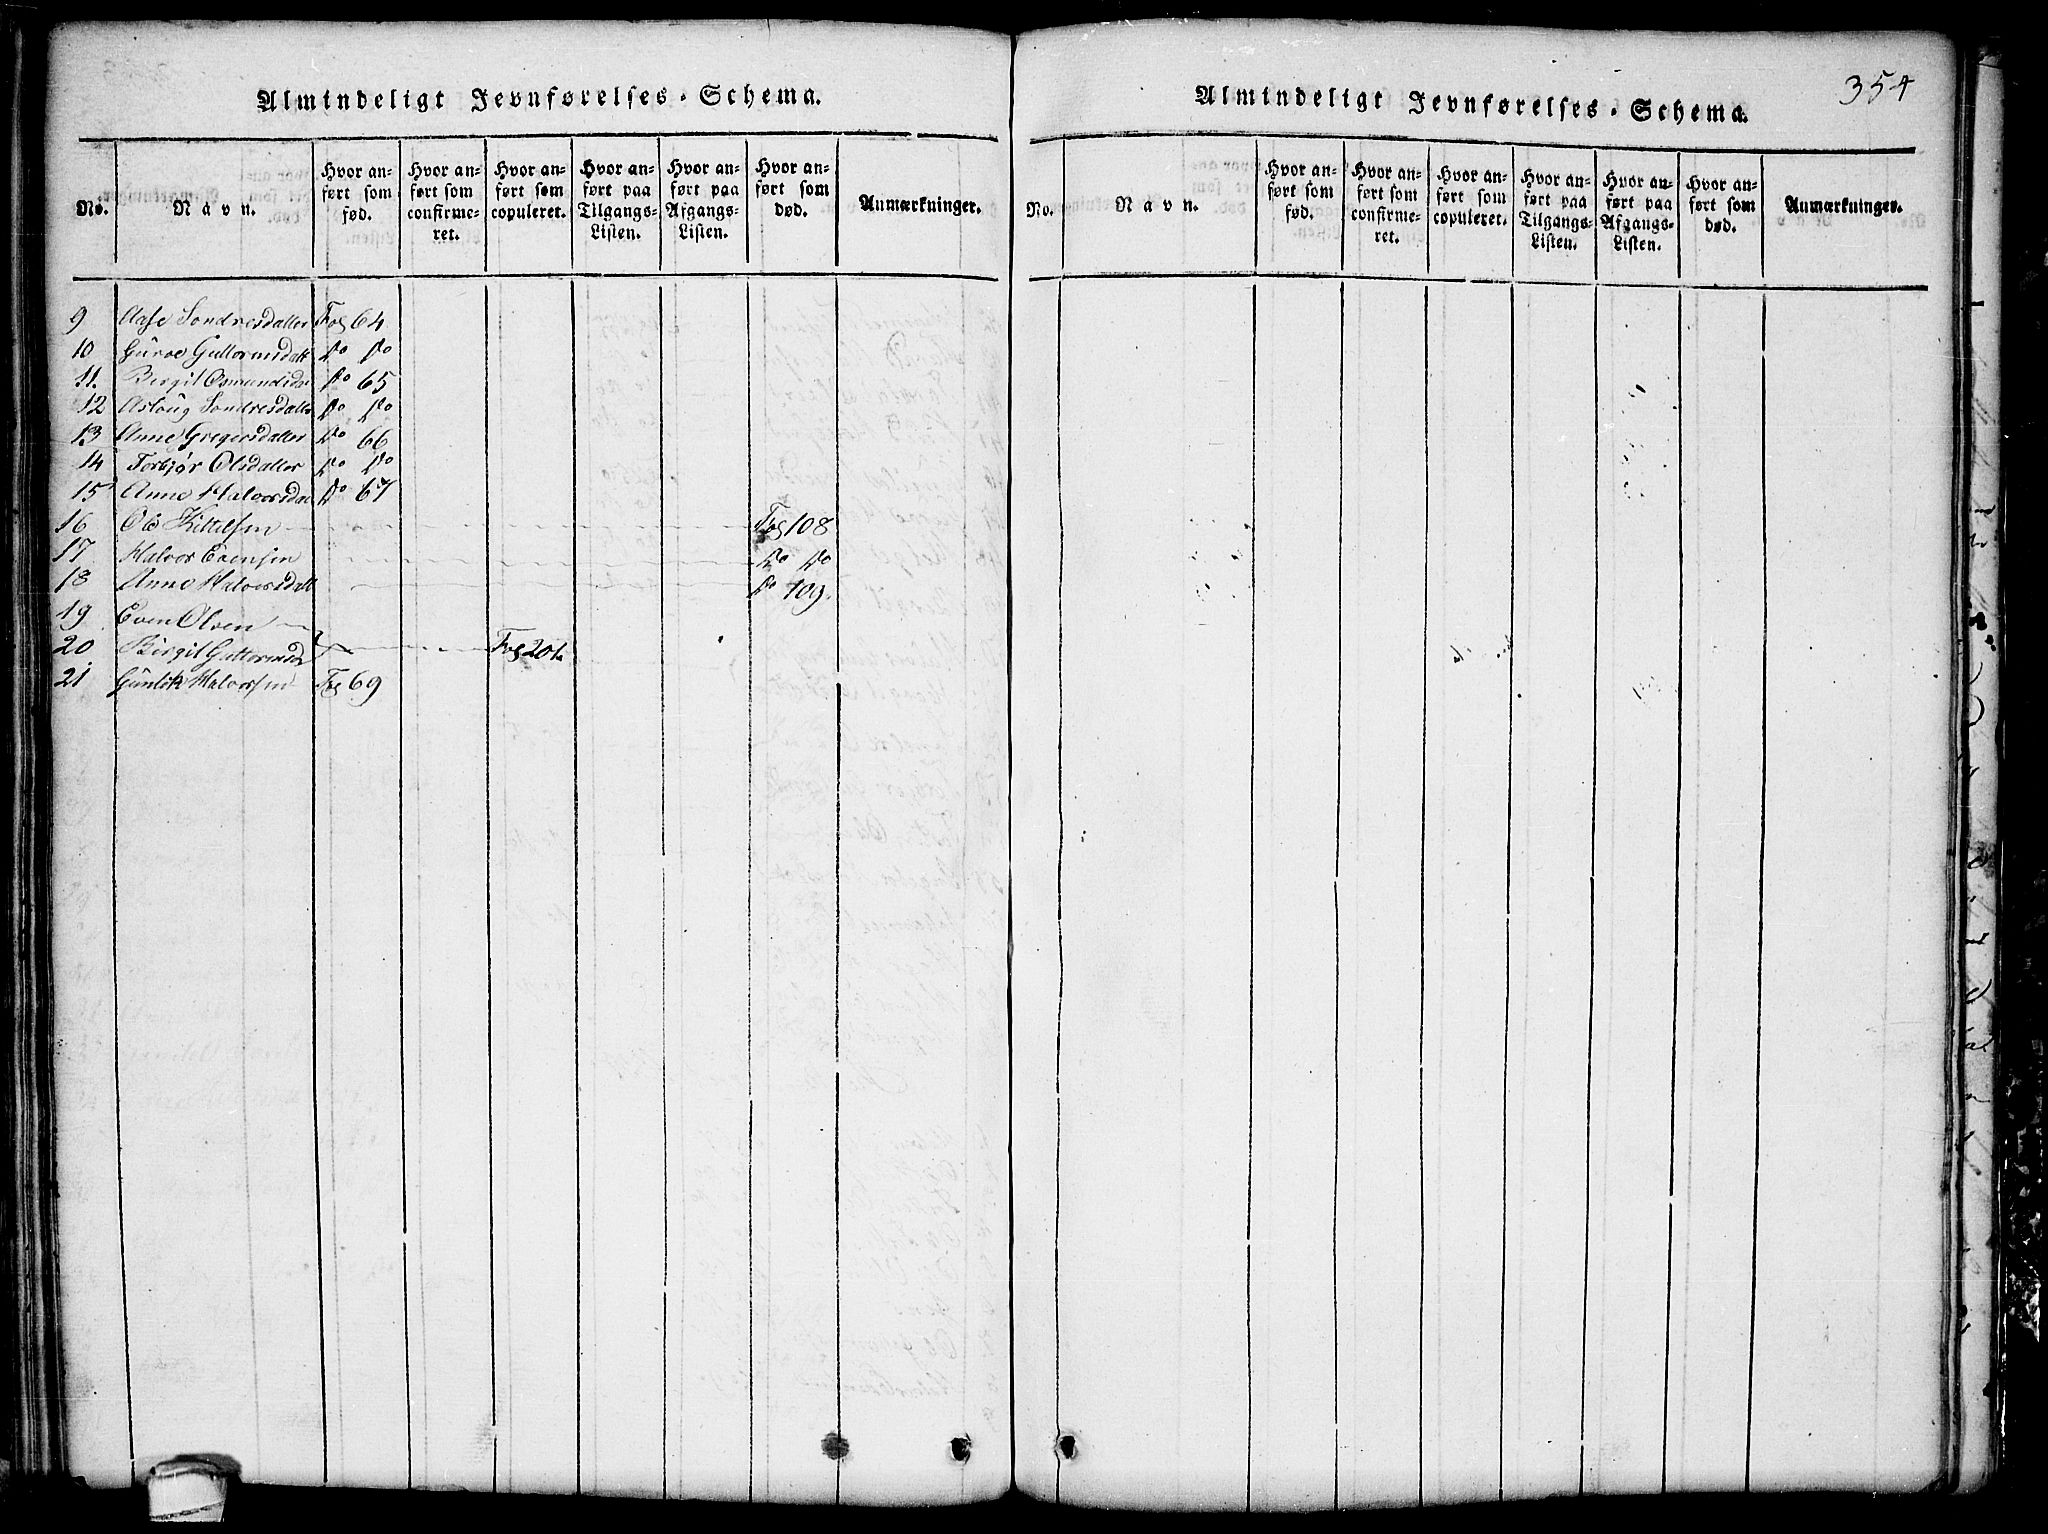 Almindeligt Jevnførelses-Schema.
No. Navn. Hvor anført som fød. Hvor anført som confirmeret. Hvor anført som copuleret. Hvor anført paa Tilgangs-Listen. Hvor anført paa Afgangs-Listen. Hvor anført som død. Anmærkninger.
9 Aase Sondresdatter Fog 64
10 Gúroe Guttormsdatt do do
11. Birgit Osmundsda do 65
12 Asloúg Sondresdatter do do
13 Anne Gregersdatter do 66
14 Torbjør Olsdatter do do
15 Anne Halvorsdat do 67
16 Ole Kittelsen Fog 108
17 Halvor Evensen do do
18 Anne Halvorsdatt do 109.
19 Even Olsen
20 Birgit Guttormsda Fog 201.
21 Gúnlek Halvorsen Fog 69
354
Almindeligt Jevnførelses-Schema.
No. Navn. Hvor anført som fød. Hvor anført som confirmeret. Hvor anført som copuleret. Hvor anført paa Tilgangs-Listen. Hvor anført paa Afgangs-Listen. Hvor anført som død. Anmærkninger.